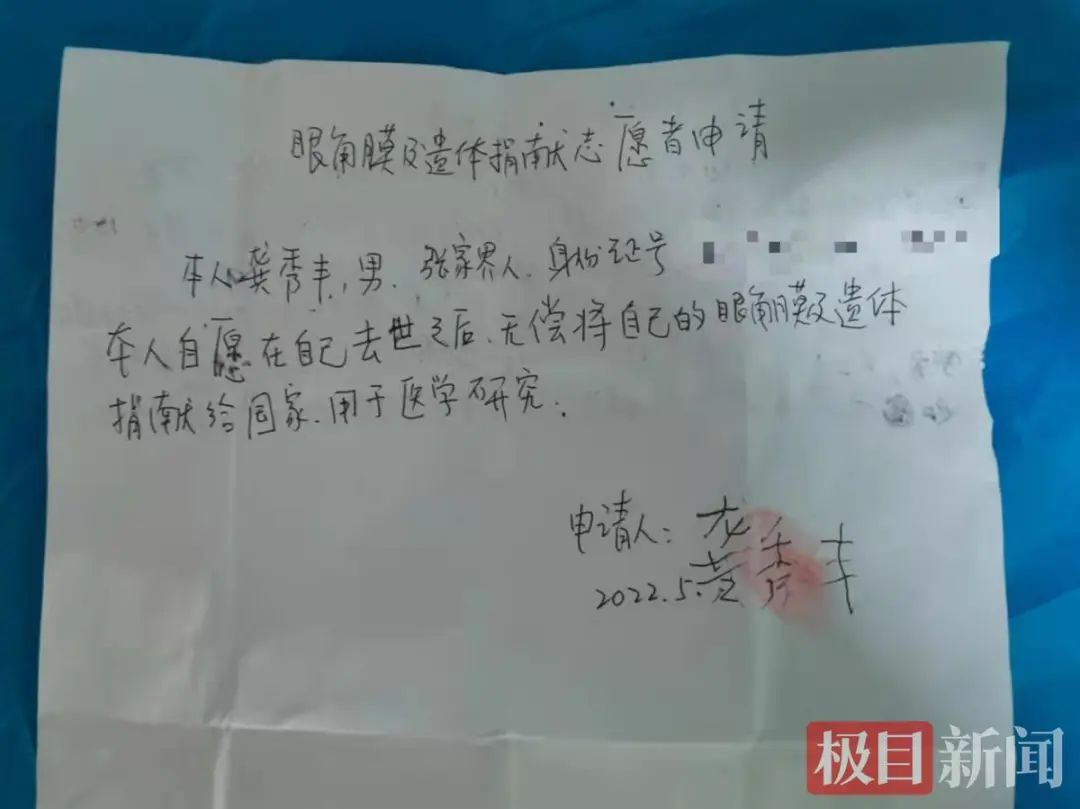 眼角膜及遗体捐献志愿者申请
本人龚秀丰,男.张家界人.身份证号
本人自愿在自己去世之后.无偿将自己的眼角膜及遗体
捐献给国家.用于医学研究.
申请人:龚秀丰
2022.5.
极目新闻